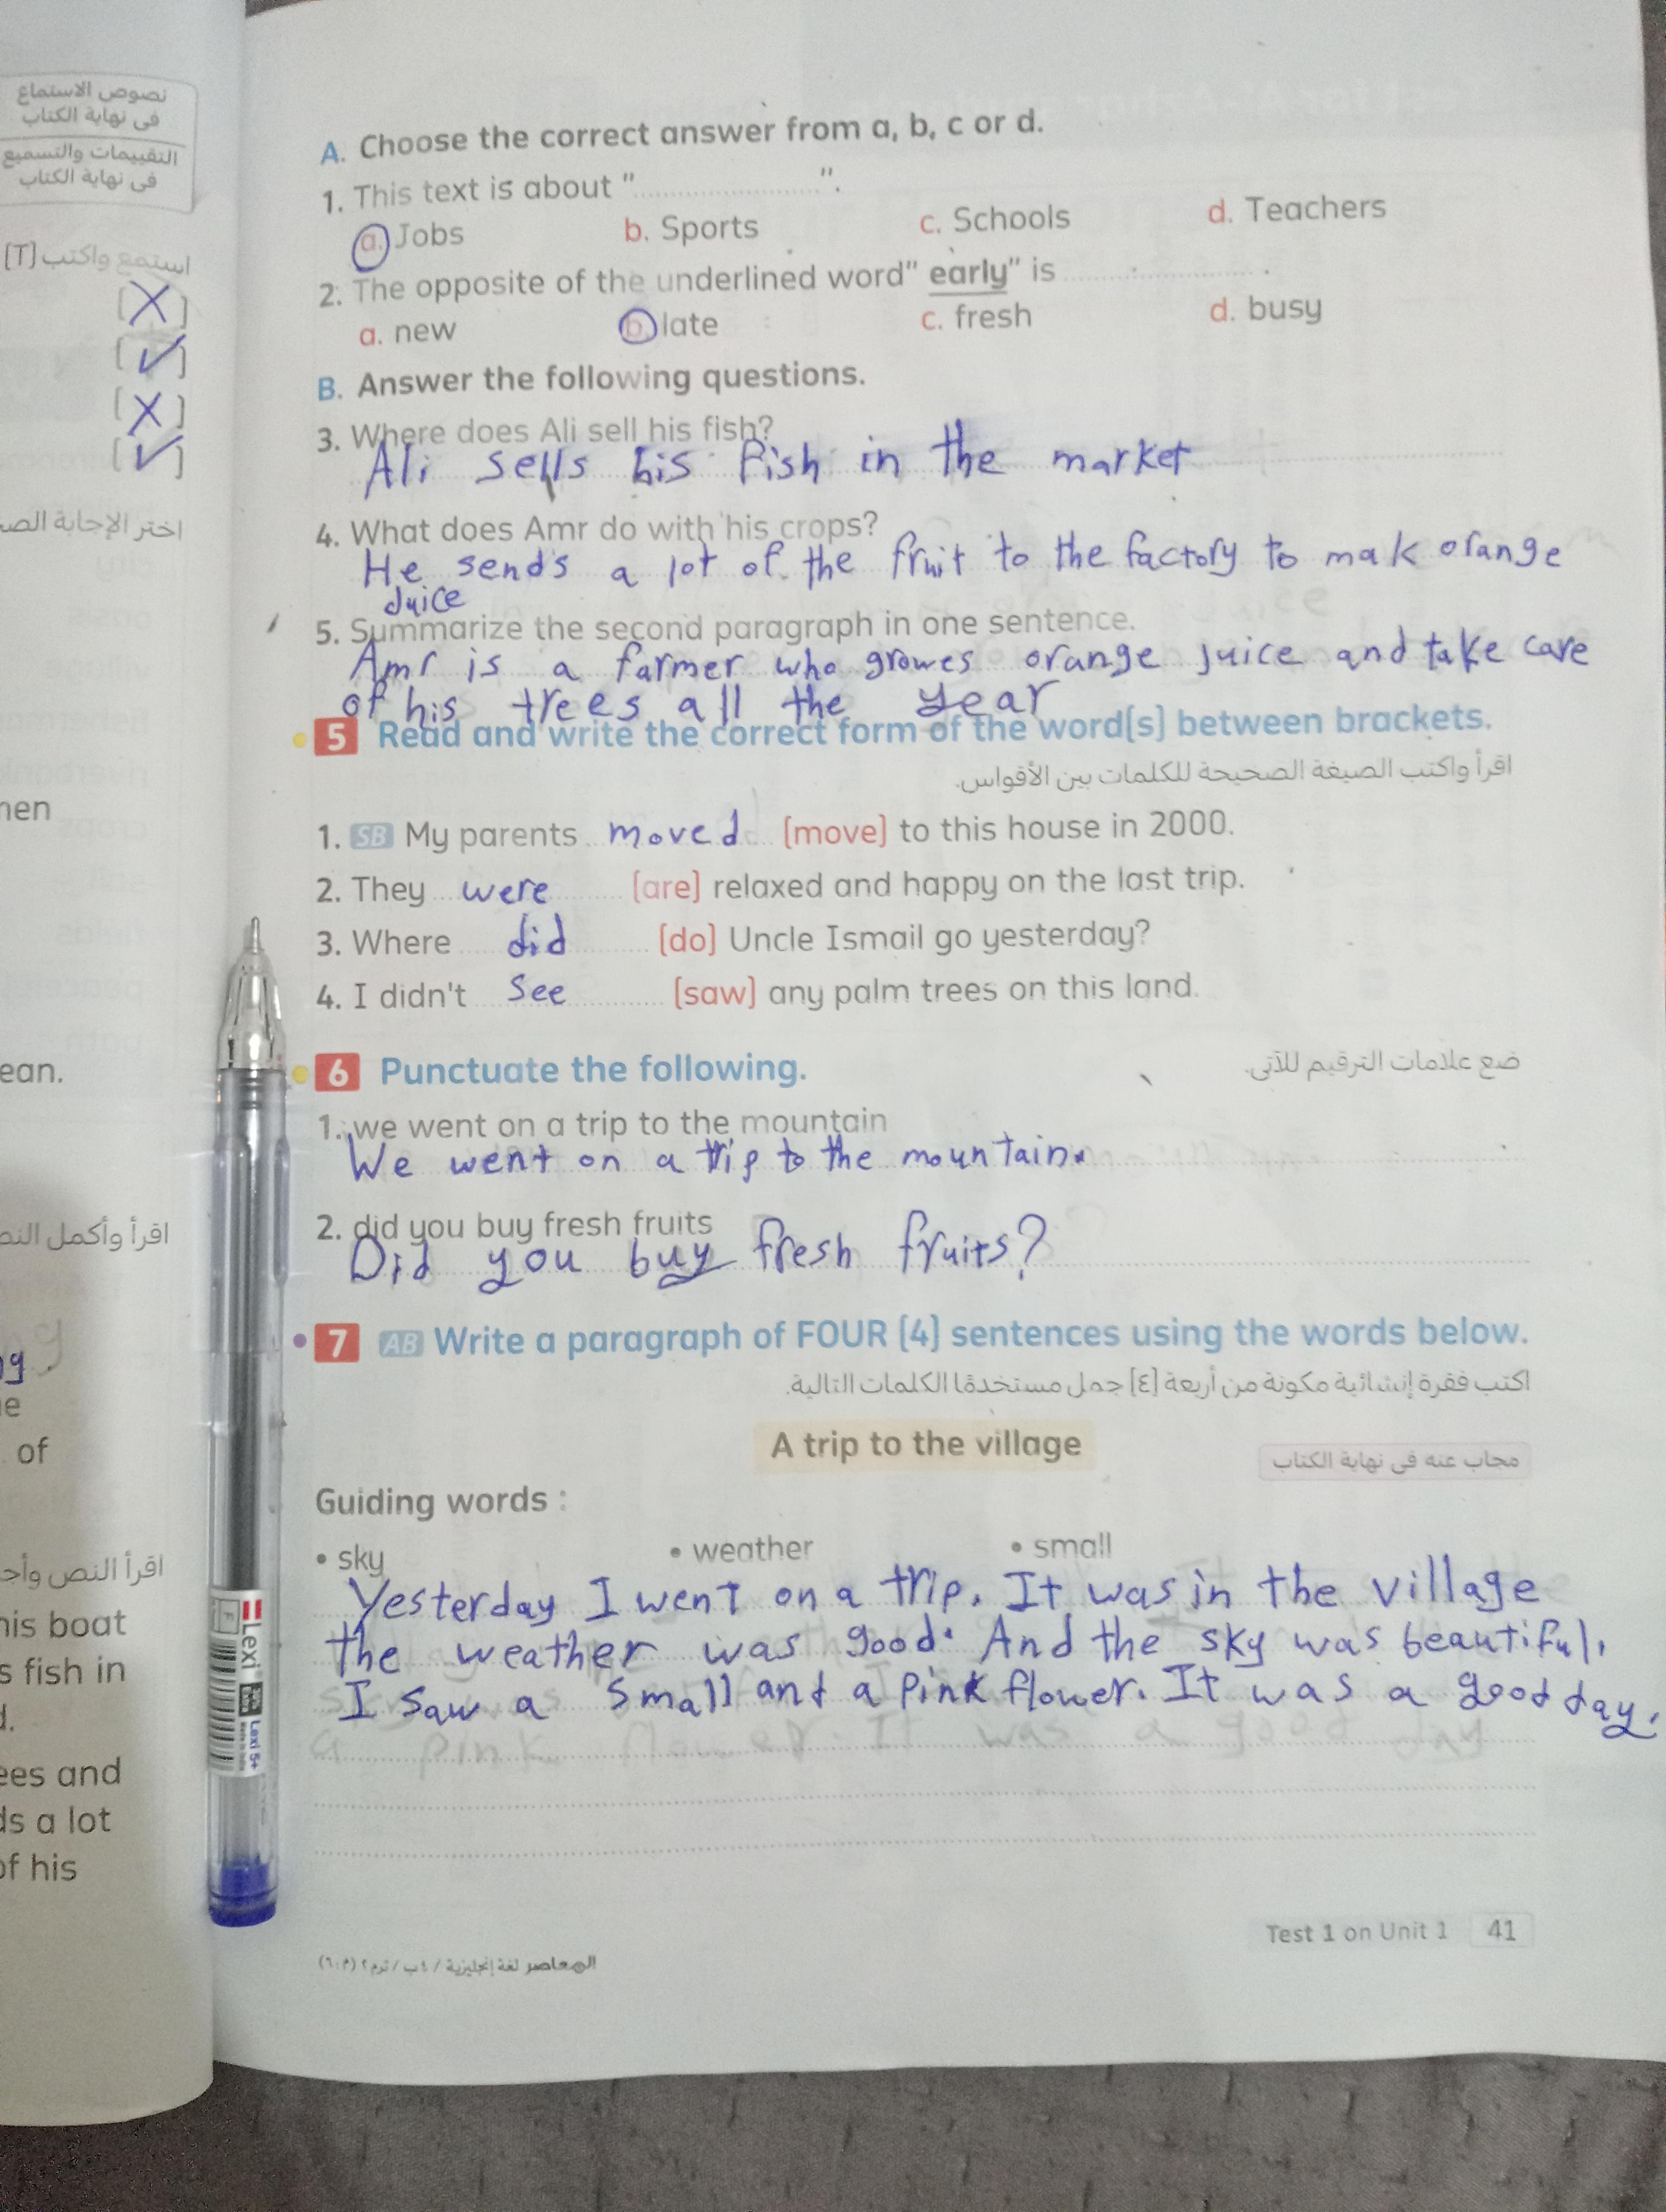 نصوص الاستماع
فى نهاية الكتاب
التقييمات والتسميع
فى نهاية الكتاب
استمع واكتب [T]
[X]
[✓]
[X]
[✓]
اختر الإجابة
ean.
اقرأ وأكمل
e
of
اقرأ النص
his boat
s fish in
ees and
ds a lot
of his
A. Choose the correct answer from a, b, c or d.
1. This text is about "....................".
a. Jobs b. Sports c. Schools d. Teachers
2. The opposite of the underlined word" early" is ....................
a. new b. late c. fresh d. busy
B. Answer the following questions.
3. Where does Ali sell his fish?
Ali sells his fish in the market
4. What does Amr do with his crops?
He sends a lot of the fruit to the factory to mak orange
Juice
5. Summarize the second paragraph in one sentence.
Amr is a farmer who growes orange Juice and take care
of his trees all the year
5 Read and write the correct form of the word(s) between brackets.
اقرأ واكتب الصيغة الصحيحة للكلمات بين الأقواس.
1. SB My parents moved (move) to this house in 2000.
2. They were (are) relaxed and happy on the last trip.
3. Where did (do) Uncle Ismail go yesterday?
4. I didn't See (saw) any palm trees on this land.
6 Punctuate the following.
ضع علامات الترقيم للآتى.
1. we went on a trip to the mountain
We went on a trip to the mountain.
2. did you buy fresh fruits
Did you buy fresh fruits?
7 AB Write a paragraph of FOUR (4) sentences using the words below.
اكتب فقرة إنشائية مكونة من أربعة [٤] جمل مستخدمًا الكلمات التالية.
A trip to the village
مجاب عنه فى نهاية الكتاب
Guiding words :
• sky • weather • small
Yesterday I went on a trip. It was in the village
the weather was good. And the sky was beautiful.
I saw a small and a pink flower. It was a good day.
a pink flower. It was a good day
Test 1 on Unit 1 41
المعاصر لغة إنجليزية / ٤ب / ترم٢ (م:٦)
Lexi
Lexi 5+